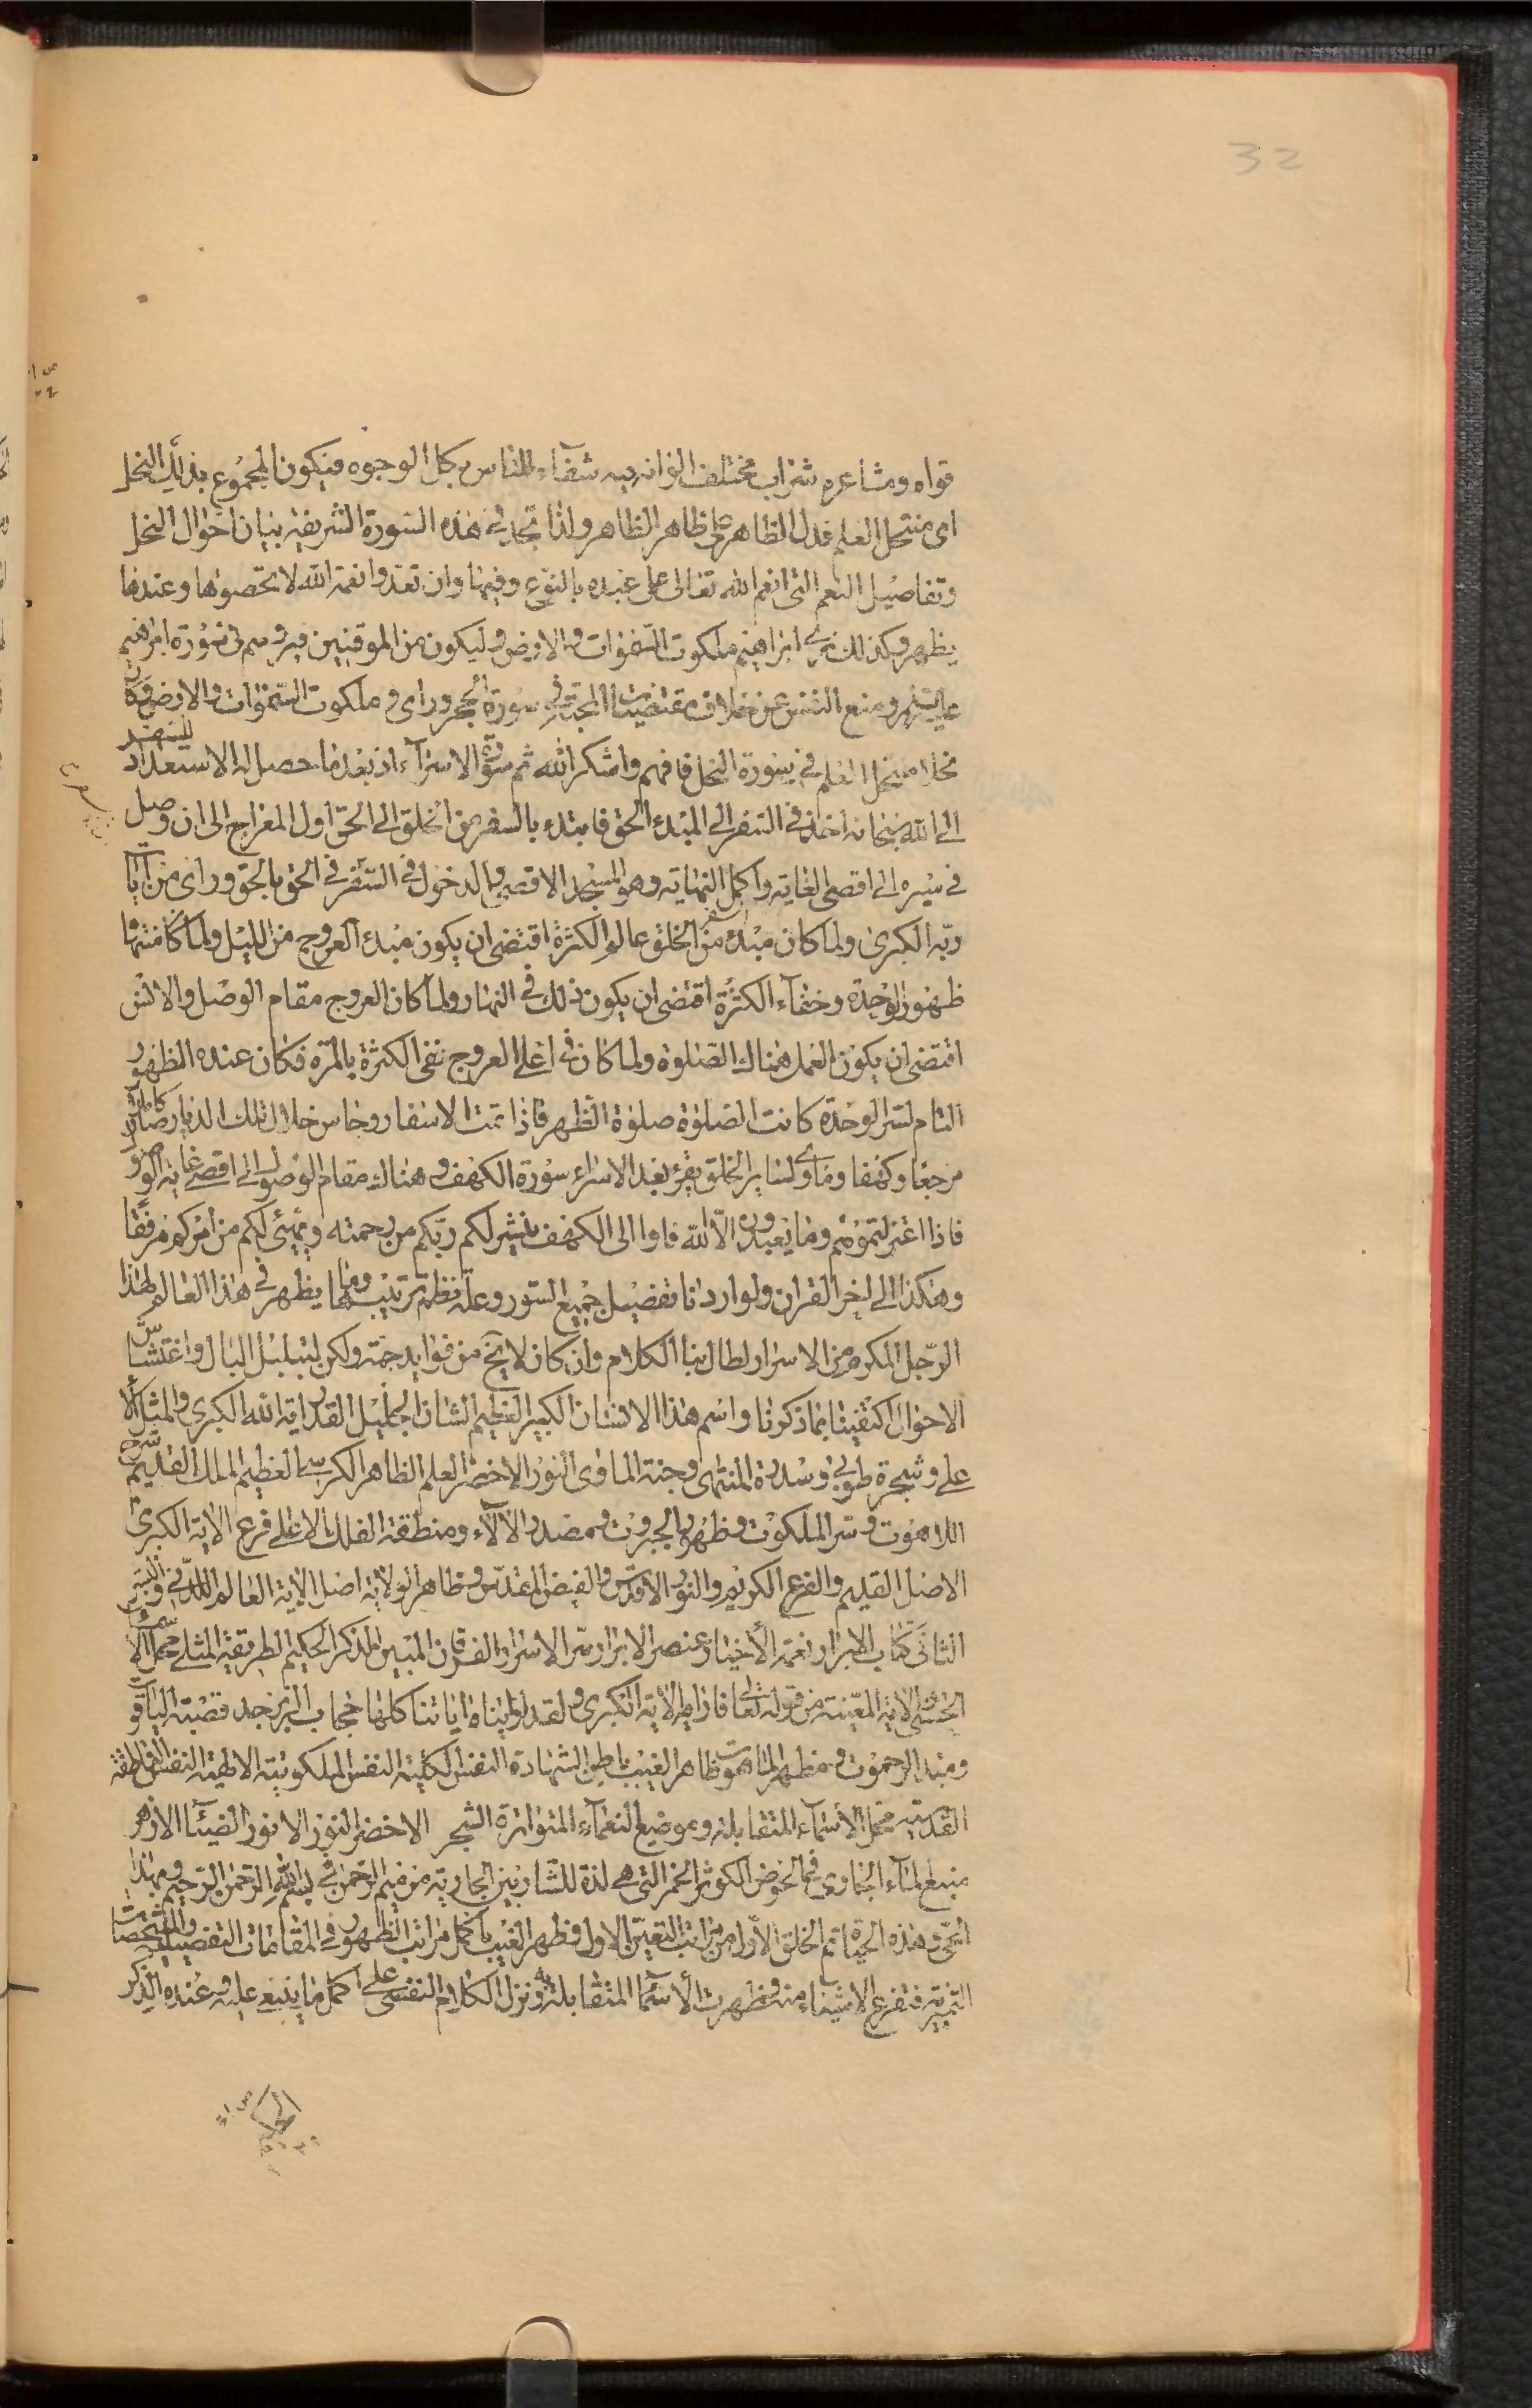 32
قواه ومشاعره شراب مختلف الوانه فيه شفآء للناس بكل الوجوه فيكون المجموع بذلك النحل
اى منتحل العلم فدل الظاهر على ظاهر الظاهر ولذا تجد فى هذه السورة الشريفة بيان احوال النحل
وتفاصيل النعم التى انعم الله تعالى على عبده بالنوع وفيها وان تعدوا نعمة الله لا تحصوها وعندها
يظهر وكذلك نرى ابراهيم ملكوت السموات والارض وليكون من الموقنين فيرسم فى سورة ابرهيم
عليه السلم ومنع النفس عن خلاف مقتضيات المحبة فى سورة الحجر وراى ملكوت السموات والارض وكان
نحلا منتحل العلم فى سورة النحل فافهم واشكر الله ثم سورة الاسرآء اذ بعد ما حصل له الاستعداد للسفر
الى الله سبحانه اخذ فى السفر الى المبدء الحق فابتدء بالسفر من الخلق الى الحق اول المعراج الى ان وصل
فى سيره الى اقصى الغاية واكمل النهاية وهو المسجد الاقصى والدخول فى السفر فى الحق بالحق وراى من آيات
ربه الكبرى ولما كان مبدء السفر من الخلق عالم الكثرة اقتضى ان يكون مبدء العروج من الليل ولما كان منتهاه
ظهور الوحدة وخفآء الكثرة اقتضى ان يكون ذلك فى النهار ولما كان العروج مقام الوصل والانس
اقتضى ان يكون العمل هناك الصلوة ولما كان فى اعلى العروج نفى الكثرة بالمرة فكان عنده الظهور
التام لسر الوحدة كانت الصلوة صلوة الظهر فاذا تمت الاسفار وجاس خلال تلك الديار صار
مرجعا وكهفا وماوى لساير الخلق يقرء بعد الاسراء سورة الكهف وهناك مقام الوصول الى اقصى غاية
فاذا اعتزلتموهم وما يعبدون الا الله فاوا الى الكهف ينشر لكم ربكم من رحمته ويهيئ لكم من امركم مرفقا
وهكذا الى اخر القران ولو اردنا تفصيل جميع السور وعلة نظم ترتيبها وما يظهر فى هذا العالم لهذا
الرجل المكرم من الاسرار لطال بنا الكلام وان كان لا يخ من فوايد جمة ولكن لتبلبل البال واغتشاش
الاحوال اكتفينا بما ذكرنا واسم هذا الانسان الكبير العظيم الشان الجليل القدر اية الله الكبرى والمثل الا
على وشجرة طوبى وسدرة المنتهى وجنة الماوى النور الاخضر العلم الظاهر الكرسى العظيم الملك القديم سر
اللاهوت وسر الملكوت وظهور الجبروت ومصدر الالآء ومنطقة الفلك الاعلى فرع الاية الكبرى
الاصل القديم والفرع الكريم والنور الاقدس والفيض المقدس وظاهر الولاية اصل الاية العالم اللدنى والسر
الثانى كتاب الابرار نعمة الأخيار عنصر الابرار سر الاسرار الفرقان المبين الذكر الحكيم الطريقة المثلى مجمل الاسمآء
الحسنى الاية المعينة من قوله تعالى فاراه الاية الكبرى ولقد اريناه اياتنا كلها حجاب الزبرجد قصبة الياقوت
ومبدء الرحموت ومظهر اللاهوت ظاهر الغيب باطن الشهادة النفس الكلية النفس الملكوتية الالهية النفس الناطقة
القدسية محل الأسمآء المتقابلة وموضع النعمآء المتواترة الشجر الاخضر النور الانور الضيآء الازهر
منبع المآء الجارى فى الحوض الكوثر الخمر التى هى لذة للشاربين الجارية من ميم الرحمن فى بسم الله الرحمن الرحيم وبهذا
الحى هذه الحياة تم الخلق الاول من مراتب التعين الاول فظهر الغيب باكمل مراتب الظهور فى المقامات التفصيلية والتشخصات
التميزية فتفرع الاشياء منه وظهرت الأسمآء المتقابلة به ونزل الكلام النفسى على اكمل ما ينبغى عليه وعنده الذكر